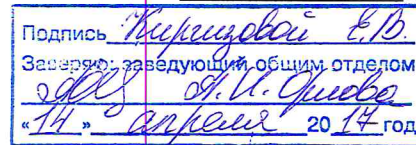 Подпись Киргизовой Е.В.
Заверяю: заведующий общим отделом
А.И. Орлова
«14» апреля 2017 год